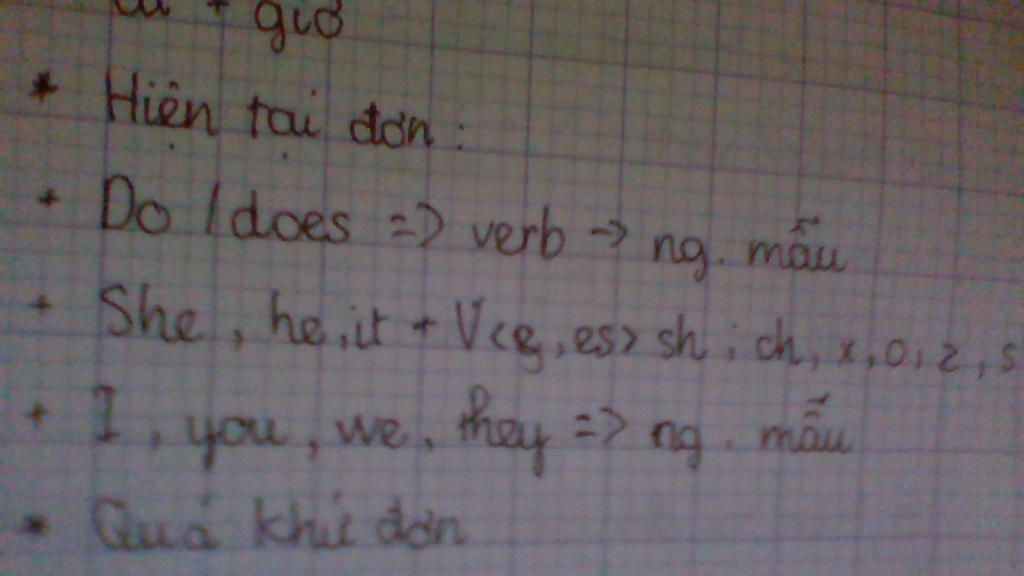 + giờ
* Hiện tại đơn :
+ Do / does => verb -> ng. mẫu
+ She, he, it + V<s, es> sh, ch, x, o, z, s
+ I, you, we, they => ng. mẫu
* Quá khứ đơn